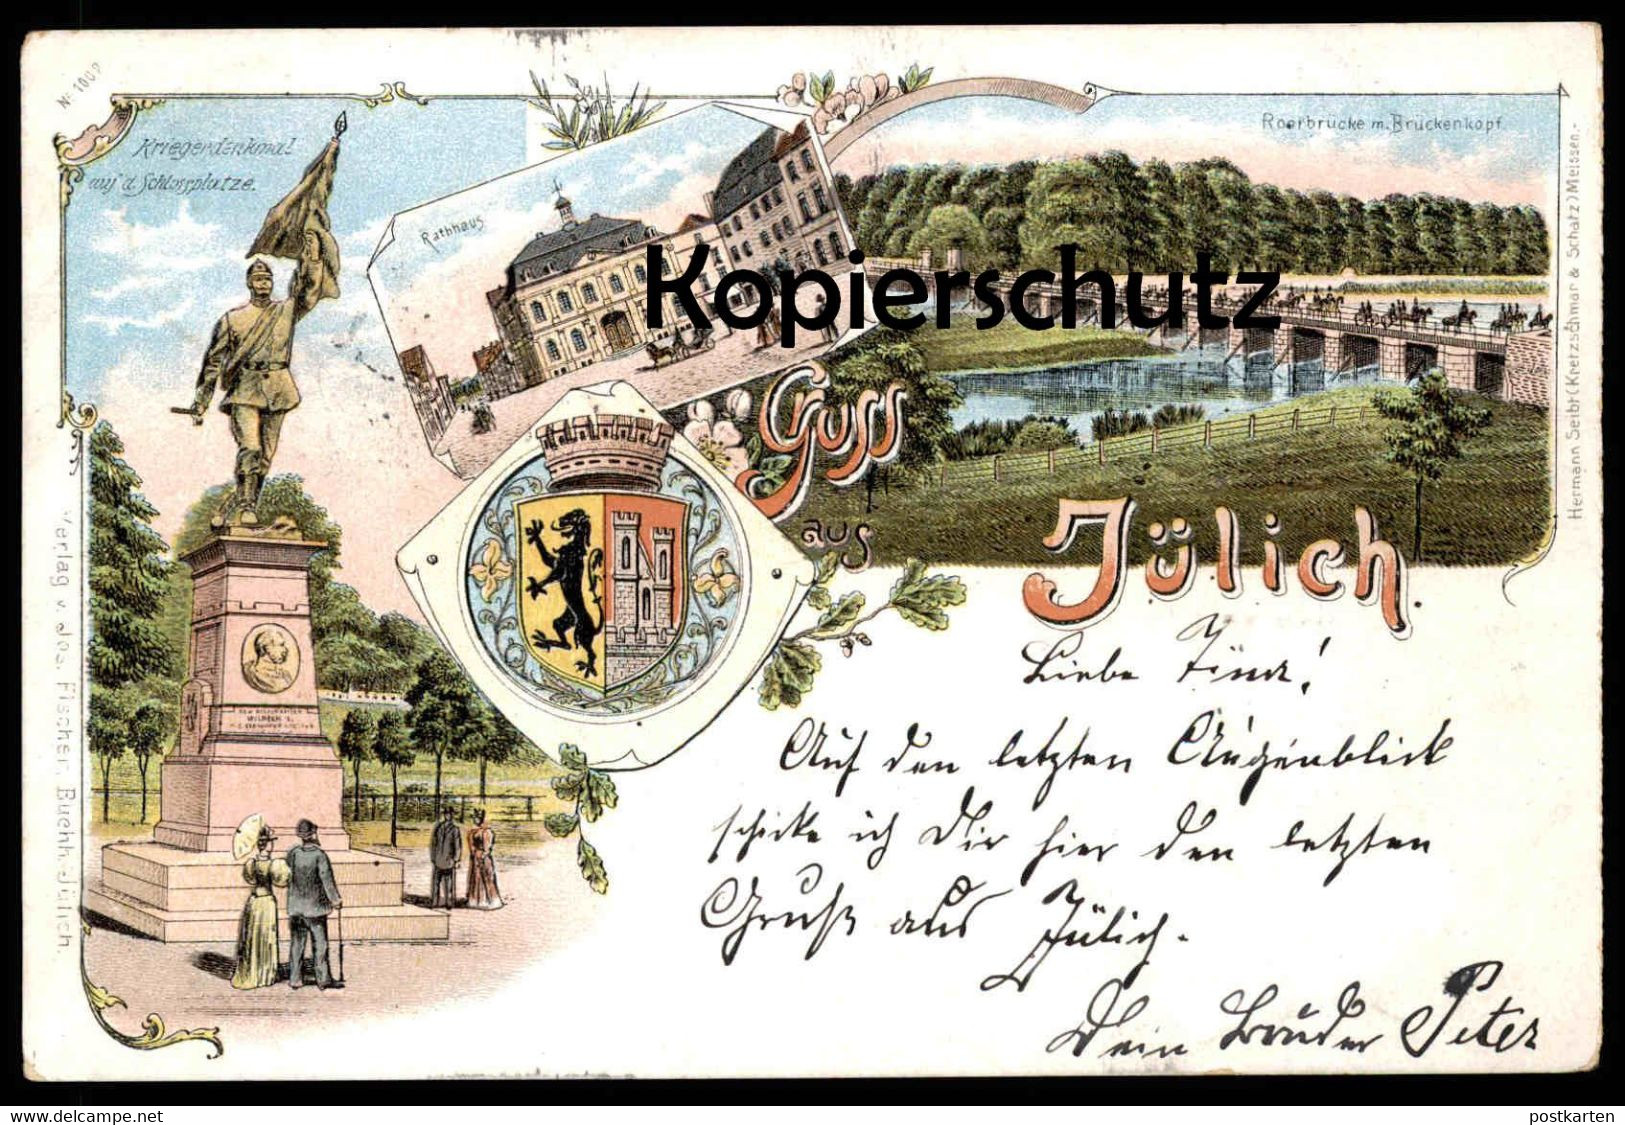 Nº 1002
Kriegerdenkmal
auf d. Schlossplatze.
Rathhaus
Roerbrücke m. Brückenkopf.
Kopierschutz
Gruss
aus
Jülich.
WILHELM I.
Liebe Tina!
Auf den letzten Augenblick
schicke ich Dir hier den letzten
Gruß aus Jülich.
Dein Bruder Peter
Verlag v. Jos. Fischer, Buchh. Jülich.
Hermann Seibt (Kretzschmar & Schatz) Meissen.-
www.delcampe.net
postkarten